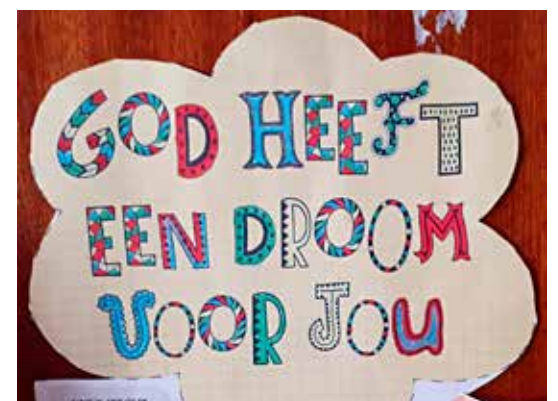 GOD HEEFT
EEN DROOM
VOOR JOU